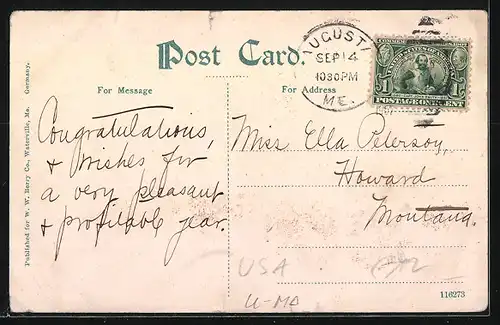 Post Card.
AUGUSTA
SEP 14
1030PM
ME.
1 POSTAGE ONE CENT 1
For Message
For Address
Congratulations,
& wishes for
a very pleasant
& profitable year.
Miss Ella Peterson,
Howard
Montana.
USA
U-MA
116273
Published for W. W. Berry Co., Waterville, Me. Germany.